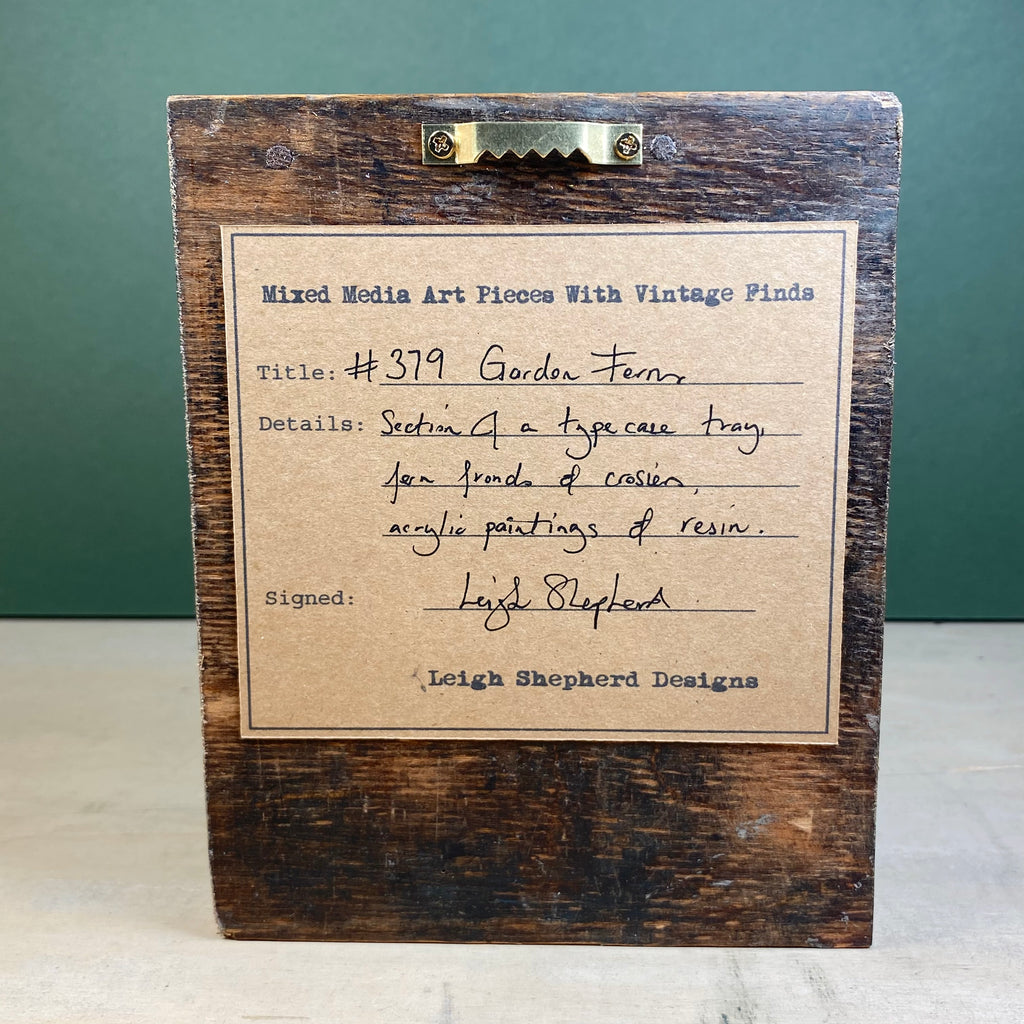 Mixed Media Art Pieces With Vintage Finds
Title: #379 Gordon Ferns
Details: Section of a type case tray,
fern fronds & crosiers,
acrylic paintings & resin.
Signed: Leigh Shepherd
Leigh Shepherd Designs